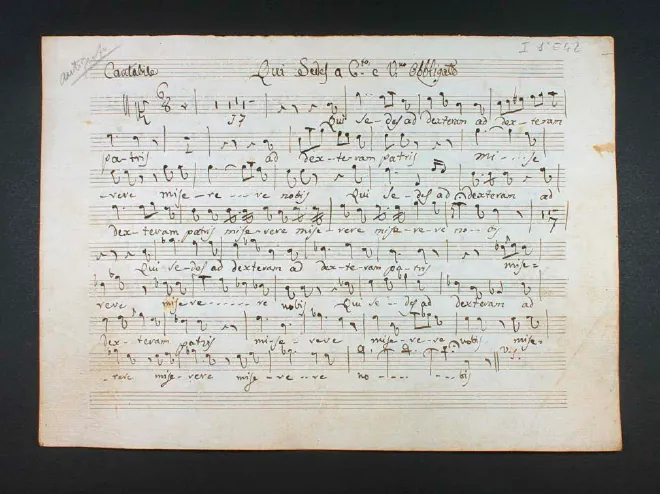 autografo
I 1° E 42
Cantabile Qui Sedes a C.to e V.no obbligato
6 8
17 Qui se-des ad dexteram ad dex-teram
pa-tris ad dex-teram patris mi---se
rere mise-re---re nobis Qui se-des ad dexteram ad
dex-teram patris mise-rere mise-rere mise-re-re no-bis 17
Qui se-des ad dexteram ad dex-te-ram pa-tris mise=
rere mise-re------re nobis Qui se--des ad dexteram ad
dex-teram patris mi-se-rere mise-re-re nobis mise=
--rere mise-rere mise-re--re no---- ---bis V.S.